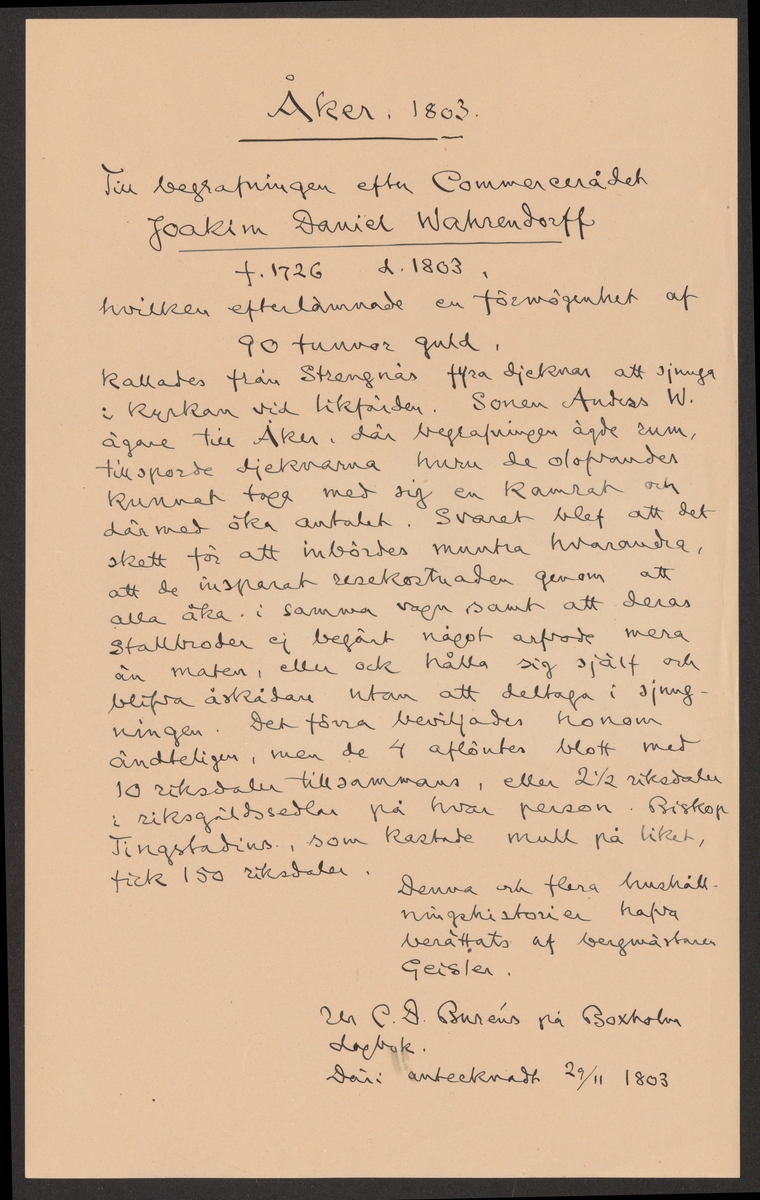 Åker. 1803.
Till begrafningen efter Commercerådet
Joakim Daniel Wahrendorff
f. 1726 d. 1803,
hvilken efterlämnade en förmögenhet af
90 tunnor guld,
kallades från Strengnäs fyra djeknar att sjunga
i kyrkan vid likfärden. Sonen Anders W.
ägare till Åker, där begrafningen ägde rum,
tillsporde djeknarna huru de olofvandes
kunnat taga med sig en kamrat och
därmed öka antalet. Svaret blef att det
skett för att inbördes muntra hvarandra,
att de insparat resekostnaden genom att
alla åka i samma vagn samt att deras
stallbroder ej begärt något arfvode mera
än maten, eller ock hålla sig själf och
blifva åskådare utan att deltaga i sjung-
ningen. Det förra beviljades honom
ändteligen, men de 4 aflöntes blott med
10 riksdaler tillsammans, eller 2 1/2 riksdaler
i riksgäldssedlar på hvar person. Biskop
Tingstadius, som kastade mull på liket,
fick 150 riksdaler.
Denna och flera hushåll-
ningshistorier hafva
berättats af bergmästaren
Geisler.
Ur C. D. Buréns på Boxholm
dagbok.
Däri antecknadt 29/11 1803